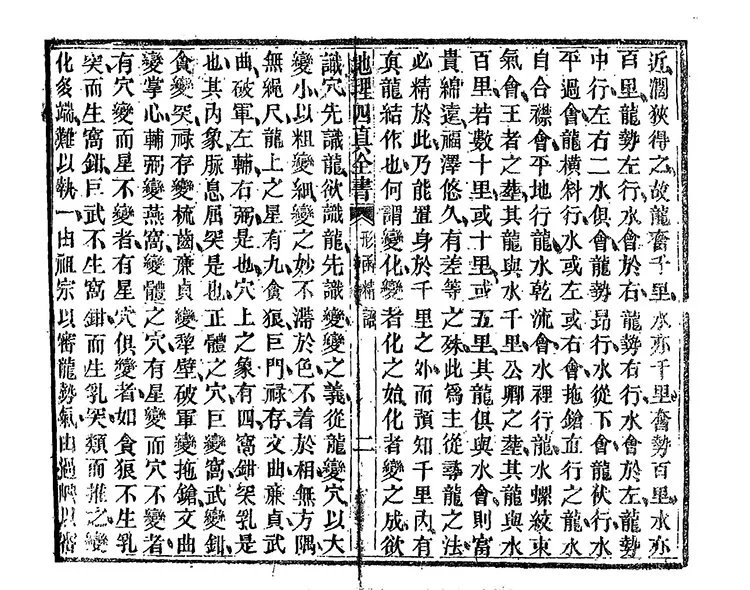 近濶狹得之故龍奮千里水亦千里奮勢百里水亦
百里龍勢左行水會於右龍勢右行水會於左龍勢
中行左右二水俱會龍勢昂行水從下會龍伏行水
平過會龍橫斜行水或左或右會拖鎗直行之龍水
自合襟會平地行龍水乾流會水裡行龍水螺紋東
氣會王者之塟其龍與水千里公卿之塟其龍與水
百里若數十里或十里或五里其龍俱與水會則富
貴綿遠福澤悠久有差等之殊此爲主從尋龍之法
必精於此乃能置身於千里之外而預知千里內有
眞龍結作也何謂變化變者化之始化者變之成欲
地理四眞全書 形函精 二
識穴先識龍欲識龍先識變變之義從龍變穴以大
變小以粗變細變之妙不滯於色不着於相無方隅
無繩尺龍上之星有九貪狼巨門祿存文曲亷貞武
曲破軍左輔右弼是也穴上之象有四窩鉗突乳是
也其內象脉息屈突是也正體之穴巨變窩武變鉗
貪變突祿存變梳齒亷貞變犂壁破軍變拖鎗文曲
變掌心輔弼變燕窩變體之穴有星變而穴不變者
有穴變而星不變者有星穴俱變者如貪狼不生乳
突而生窩鉗巨武不生窩鉗而生乳突類而推之變
化多端難以執一由祖宗以審龍勢氣由過峽以審